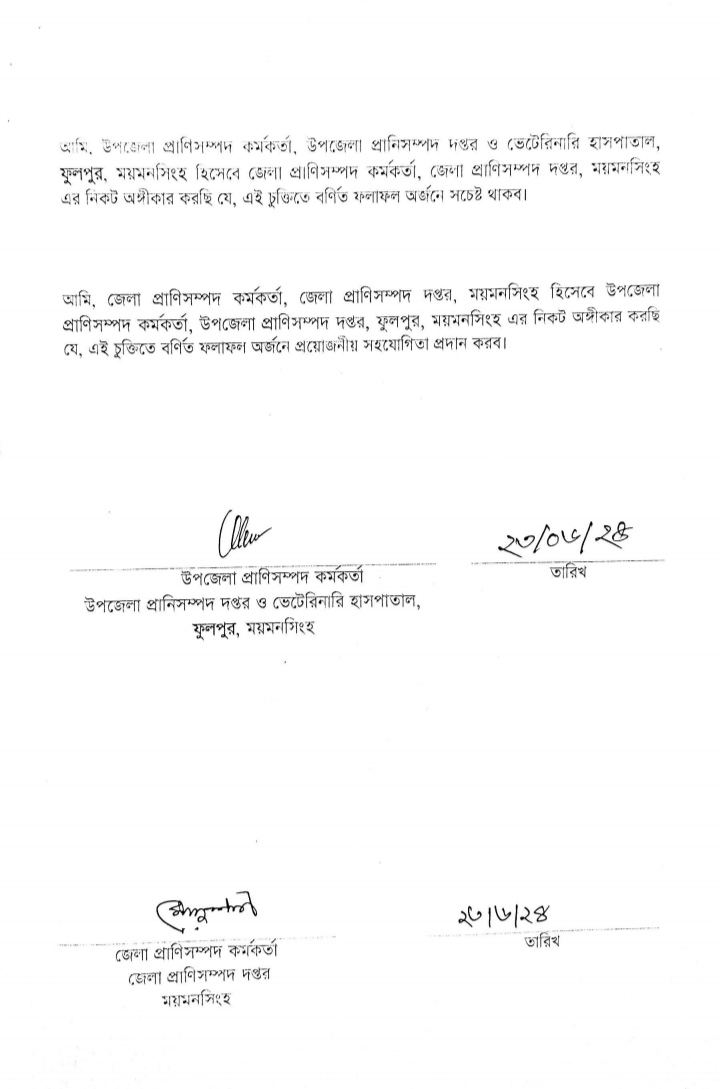 আমি, উপজেলা প্রাণিসম্পদ কর্মকর্তা, উপজেলা প্রানিসম্পদ দপ্তর ও ভেটেরিনারি হাসপাতাল,
ফুলপুর, ময়মনসিংহ হিসেবে জেলা প্রাণিসম্পদ কর্মকর্তা, জেলা প্রাণিসম্পদ দপ্তর, ময়মনসিংহ
এর নিকট অঙ্গীকার করছি যে, এই চুক্তিতে বর্ণিত ফলাফল অর্জনে সচেষ্ট থাকব।
আমি, জেলা প্রাণিসম্পদ কর্মকর্তা, জেলা প্রাণিসম্পদ দপ্তর, ময়মনসিংহ হিসেবে উপজেলা
প্রাণিসম্পদ কর্মকর্তা, উপজেলা প্রাণিসম্পদ দপ্তর, ফুলপুর, ময়মনসিংহ এর নিকট অঙ্গীকার করছি
যে, এই চুক্তিতে বর্ণিত ফলাফল অর্জনে প্রয়োজনীয় সহযোগিতা প্রদান করব।
২৩/০৬/২৪
উপজেলা প্রাণিসম্পদ কর্মকর্তা
তারিখ
উপজেলা প্রানিসম্পদ দপ্তর ও ভেটেরিনারি হাসপাতাল,
ফুলপুর, ময়মনসিংহ
২৩/৬/২৪
জেলা প্রাণিসম্পদ কর্মকর্তা
তারিখ
জেলা প্রাণিসম্পদ দপ্তর
ময়মনসিংহ